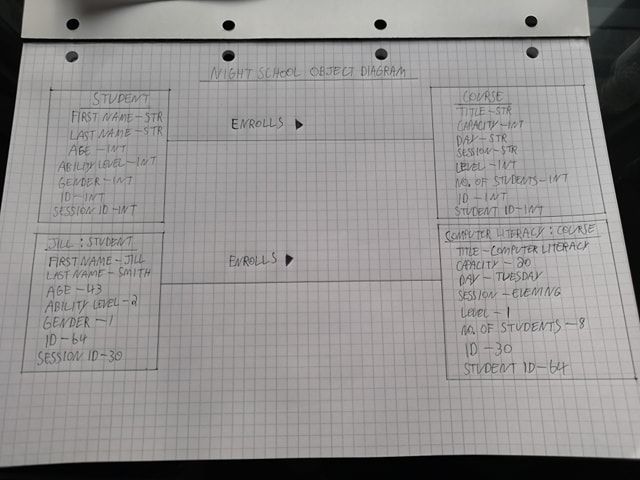 NIGHT SCHOOL OBJECT DIAGRAM
STUDENT
FIRST NAME - STR
LAST NAME - STR
AGE - INT
ABILITY LEVEL - INT
GENDER - INT
ID - INT
SESSION ID - INT
ENROLLS ▶
COURSE
TITLE - STR
CAPACITY - INT
DAY - STR
SESSION - STR
LEVEL - INT
NO. OF STUDENTS - INT
ID - INT
STUDENT ID - INT
JILL : STUDENT
FIRST NAME - JILL
LAST NAME - SMITH
AGE - 43
ABILITY LEVEL - 2
GENDER - 1
ID - 64
SESSION ID - 30
ENROLLS ▶
COMPUTER LITERACY : COURSE
TITLE - COMPUTER LITERACY
CAPACITY - 20
DAY - TUESDAY
SESSION - EVENING
LEVEL - 1
NO. OF STUDENTS - 8
ID - 30
STUDENT ID - 64